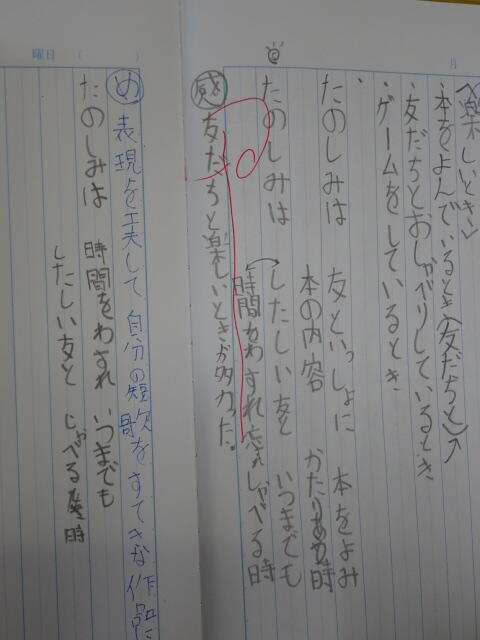 月
<楽しいとき>
・本をよんでいるとき(友だちと)
・友だちとおしゃべりしているとき
・ゲームをしているとき
たのしみは 友といっしょに 本をよみ
本の内容 かたりあう時
たのしみは したしい友と いつまでも
時間をわすれ忘れ しゃべる時
感 友だちと楽しいときが多かった。
曜日 ( )
め 表現を工夫して、自分の短歌をすてきな作品に
たのしみは 時間をわすれ いつまでも
したしい友と しゃべる時